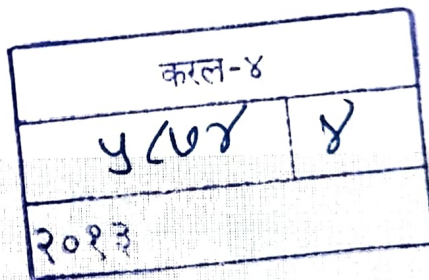 करल-४
५८७४ ४
२०१३